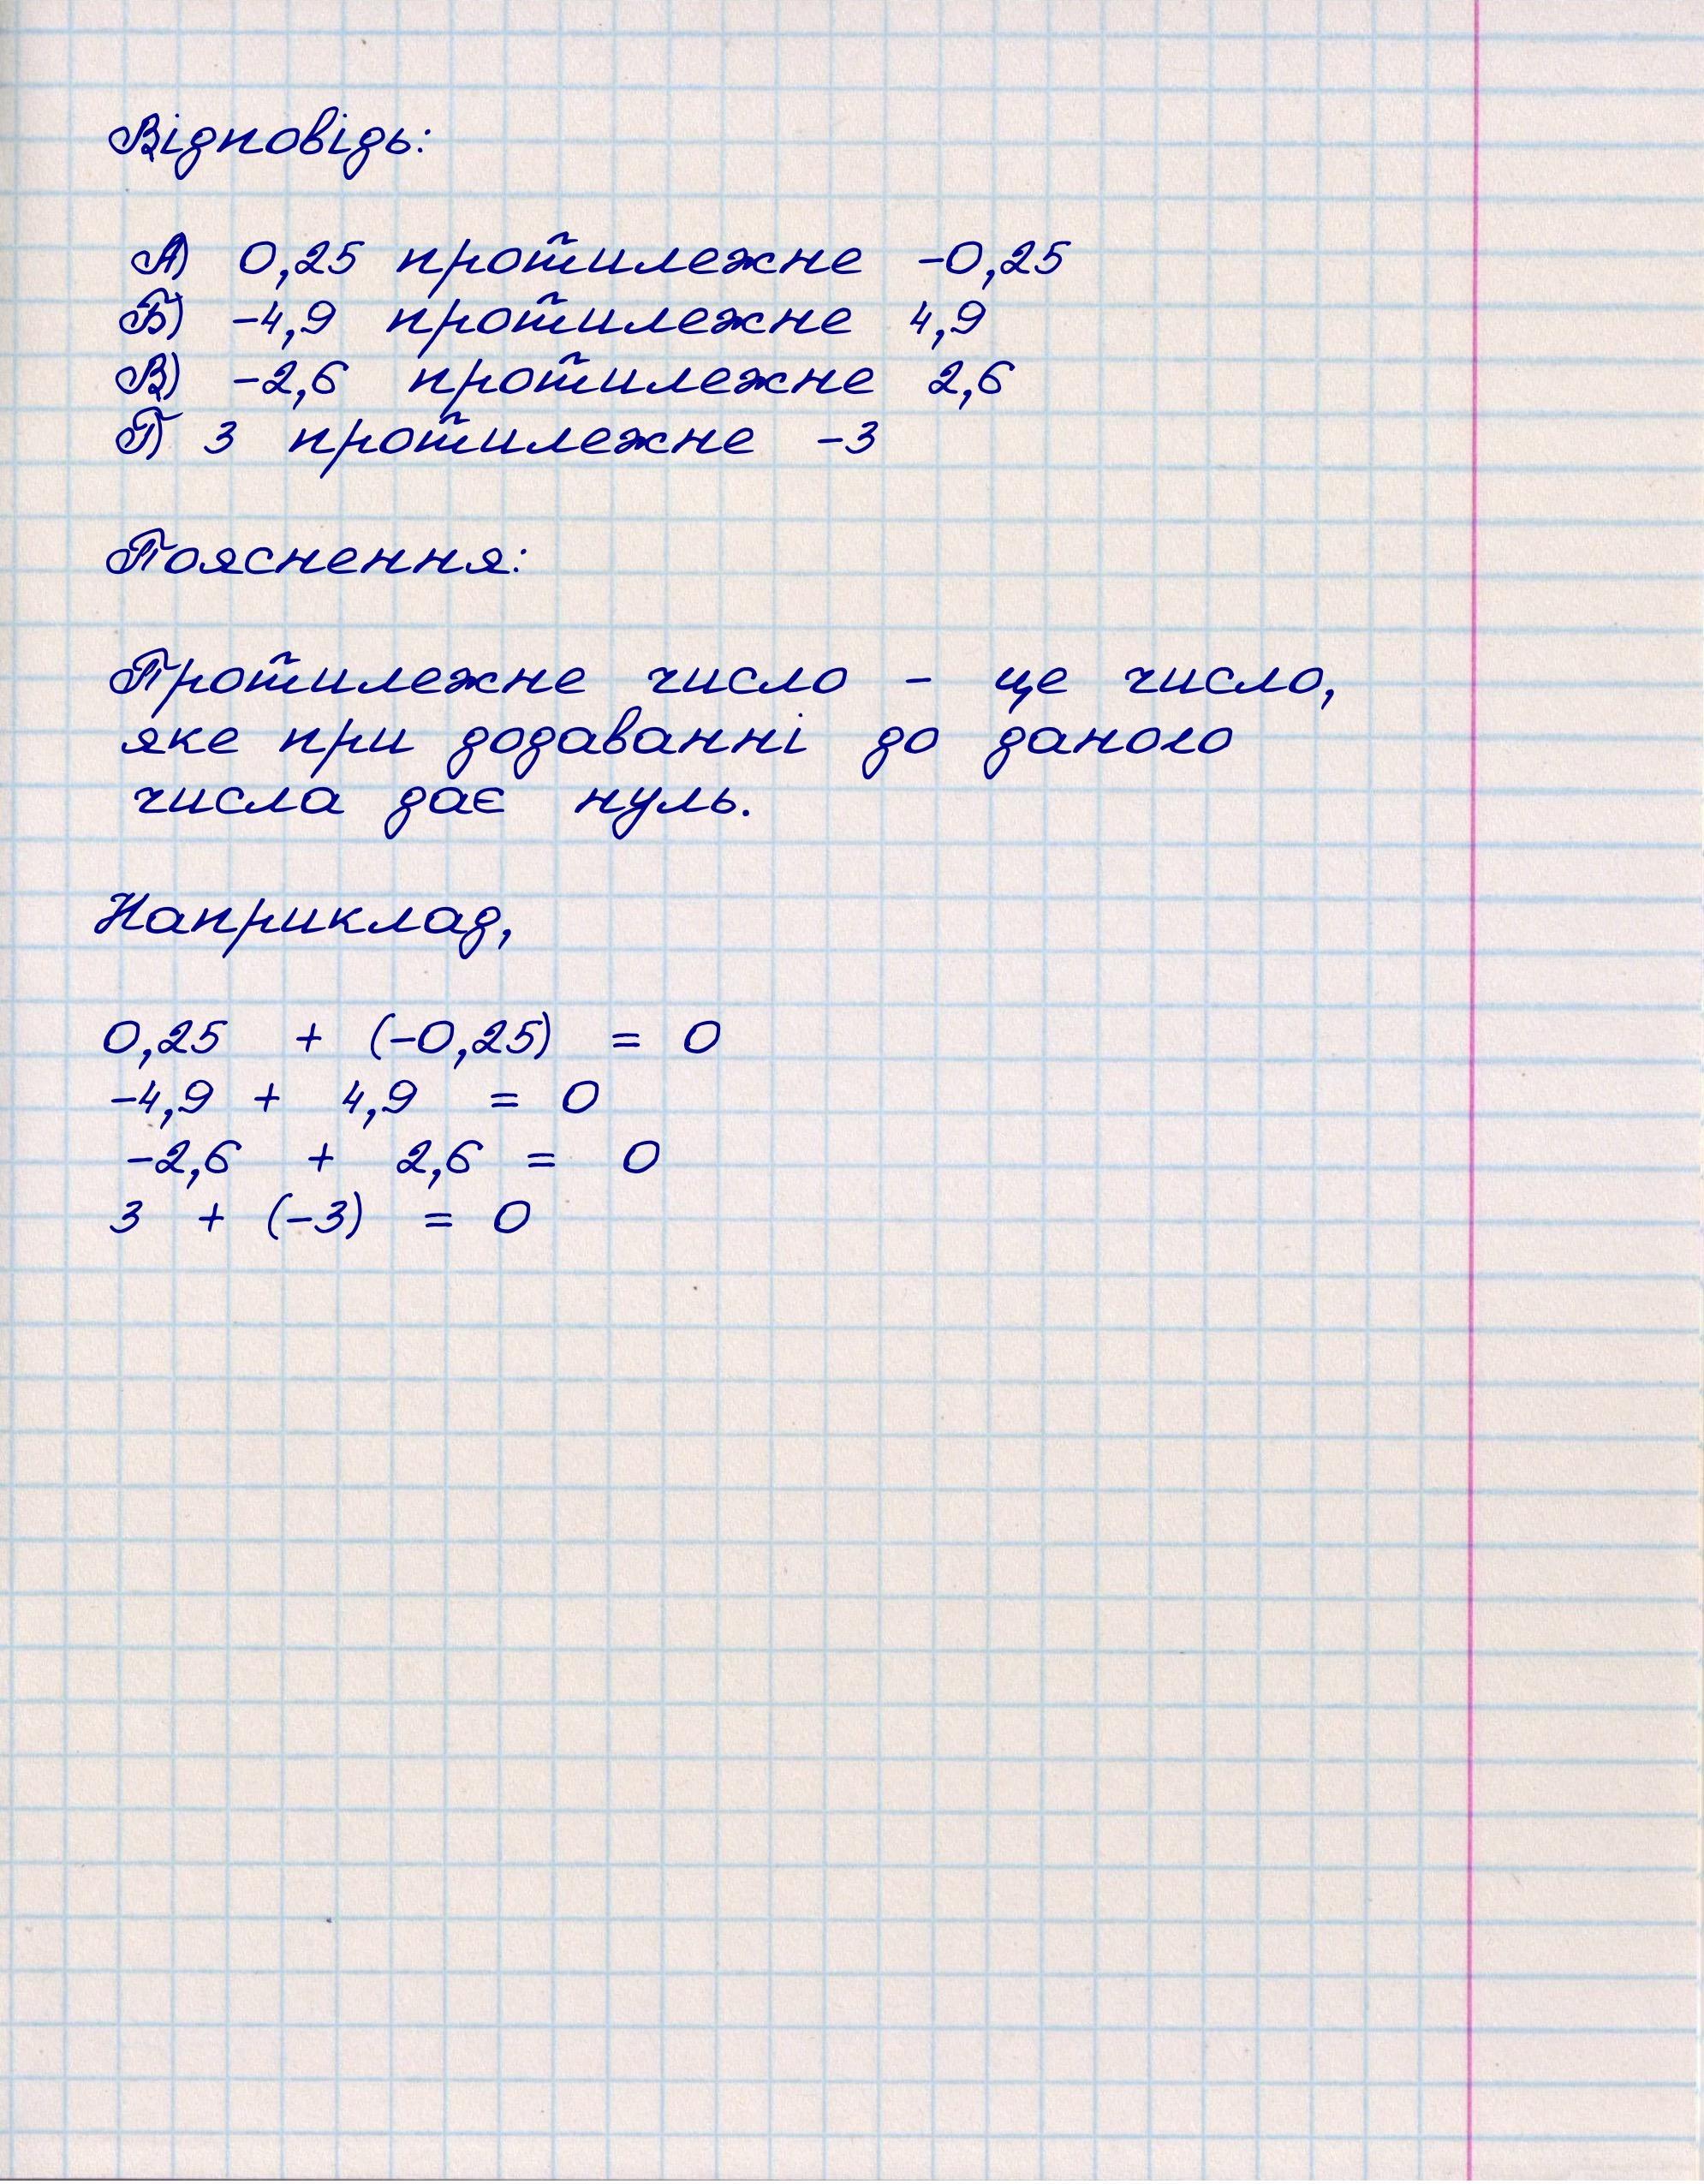 Відповідь:
А) 0,25 протилежне -0,25
Б) -4,9 протилежне 4,9
В) -2,6 протилежне 2,6
Г) 3 протилежне -3
Пояснення:
Протилежне число - це число,
яке при додаванні до даного
числа дає нуль.
Наприклад,
0,25 + (-0,25) = 0
-4,9 + 4,9 = 0
-2,6 + 2,6 = 0
3 + (-3) = 0